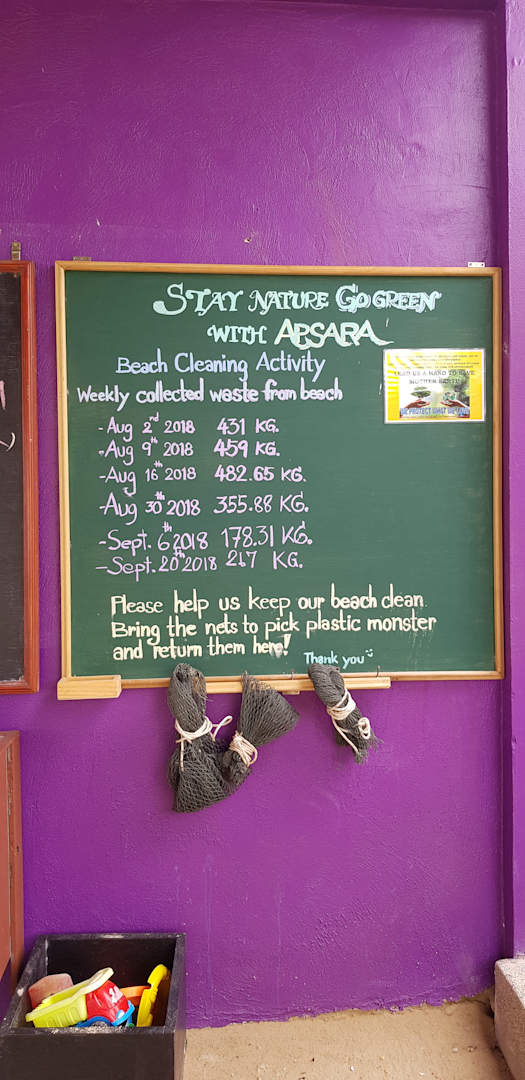 STAY NATURE GO GREEN
WITH APSARA
Beach Cleaning Activity
Weekly collected waste from beach
- Aug 2nd 2018 431 KG.
- Aug 9th 2018 459 KG.
- Aug 16th 2018 482.65 KG.
- Aug 30th 2018 355.88 KG.
- Sept. 6th 2018 178.31 KG.
- Sept. 20th 2018 217 KG.
Please help us keep our beach clean
Bring the nets to pick plastic monster
and return them here!
Thank you
LEND US A HAND TO SAVE
MOTHER EARTH